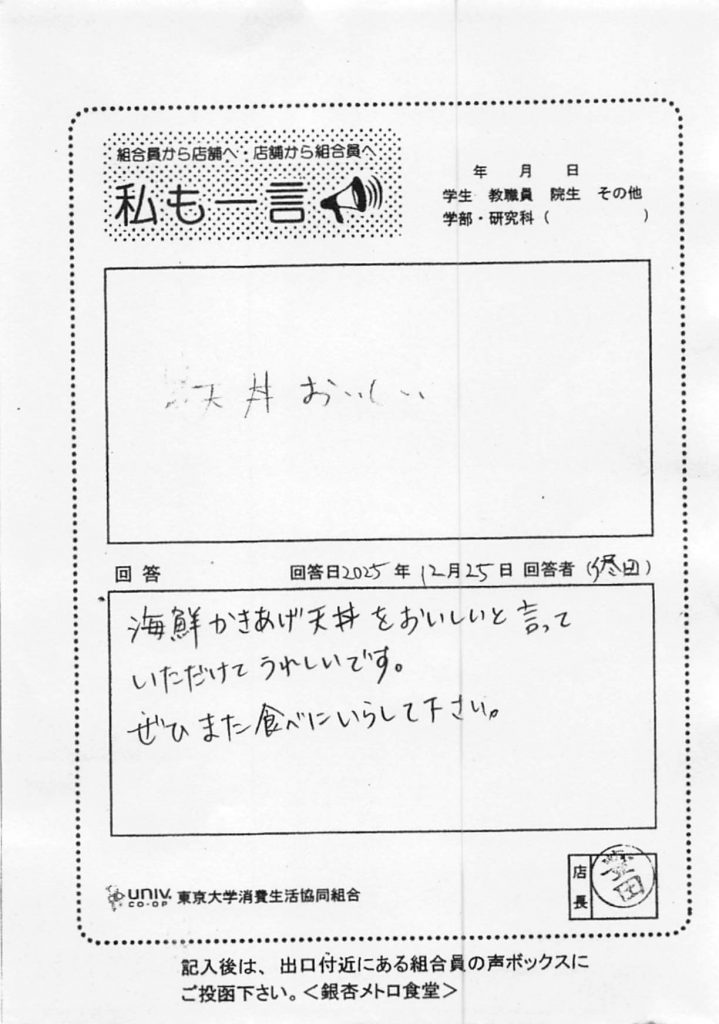 組合員から店舗へ・店舗から組合員へ
私も一言
年 月 日
学生 教職員 院生 その他
学部・研究科( )
天丼 おいしい
回答 回答日2025年12月25日 回答者( 田)
海鮮かきあげ天丼をおいしいと言って
いただけてうれしいです。
ぜひまた食べにいらして下さい。
店長
UNIV.
CO-OP
東京大学消費生活協同組合
記入後は、出口付近にある組合員の声ボックスに
ご投函下さい。<銀杏メトロ食堂>